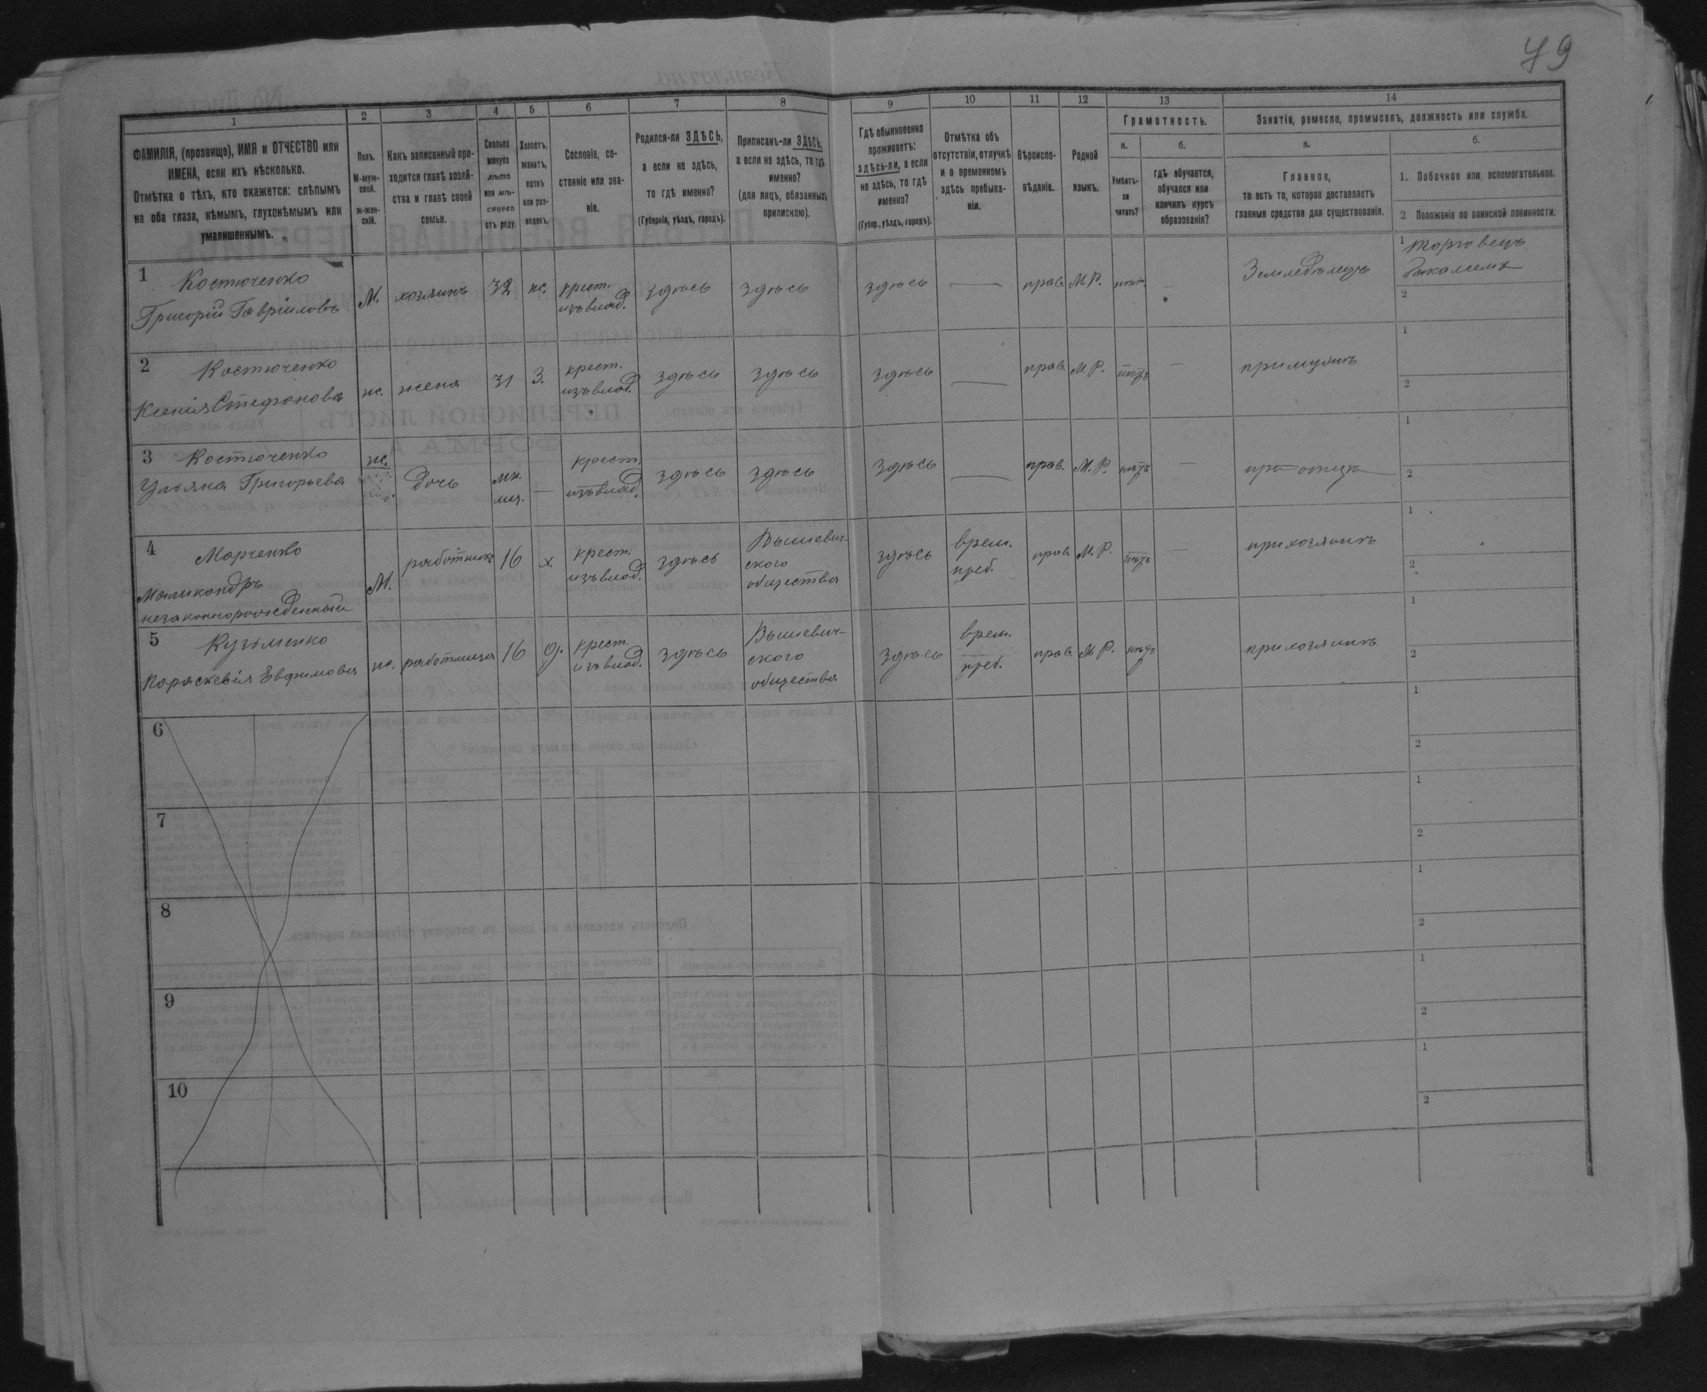 79
1 2 3 4 5 6 7 8 9 10 11 12 13 14
ФАМИЛІЯ, (прозвище), ИМЯ и ОТЧЕСТВО или
ИМЕНА, если ихъ нѣсколько.
Отмѣтка о тѣхъ, кто окажется: слѣпымъ
на оба глаза, нѣмымъ, глухонѣмымъ или
умалишеннымъ.
Полъ.
М-муж-
ской.
ж-жен-
скій.
Какъ записанный при-
ходится главѣ хозяй-
ства и главѣ своей
семьи.
Сколько
минуло
лѣтъ
или мѣ-
сяцевъ
отъ роду.
Холостъ,
женатъ,
вдовъ
или раз-
веденъ.
Сословіе, со-
стояніе или зва-
ніе.
Родился-ли ЗДѢСЬ,
а если не здѣсь,
то гдѣ именно?
(Губернія, уѣздъ, городъ).
Приписанъ-ли ЗДѢСЬ,
а если не здѣсь, то гдѣ
именно?
(для лицъ, обязанныхъ
припискою).
Гдѣ обыкновенно
проживаетъ:
здѣсь-ли, а если
не здѣсь, то гдѣ
именно?
(Губер., уѣздъ, городъ).
Отмѣтка объ
отсутствіи, отлучкѣ
и о временномъ
здѣсь пребыва-
ніи.
Вѣроиспо-
вѣданіе.
Родной
языкъ.
Грамотность.
а.
Умѣетъ-
ли
читать?
б.
Гдѣ обучается,
обучался или
кончилъ курсъ
образованія?
Занятіе, ремесло, промыселъ, должность или служба.
а.
Главное,
то есть то, которое доставляетъ
главныя средства для существованія.
б.
1. Побочное или вспомогательное.
2 Положеніе по воинской повинности.
1 Костюченко
Григорій Гавріиловъ
М. хозяинъ 32 ж. крест.
изъ влад. здѣсь здѣсь здѣсь — прав. М.Р. нѣтъ — Земледѣлецъ
1 Торговецъ
2
2 Костюченко
Ксенія Стефанова
ж. жена 31 З. крест.
изъ влад. здѣсь здѣсь здѣсь — прав. М.Р. нѣтъ — при мужѣ
1
2
3 Костюченко
Ульяна Григорьева
ж. дочь — крест.
изъ влад. здѣсь здѣсь здѣсь — прав. М.Р. нѣтъ — при отцѣ
1
2
4 Марченко
незаконнорожденный
М. работникъ 16 х. крест.
изъ влад. здѣсь Вышевич-
скаго
общества здѣсь врем.
преб. прав. М.Р. нѣтъ — при хозяинѣ
1
2
5 Кузьменко
Параскевія Евфимова
ж. работница 16 д. крест.
изъ влад. здѣсь Вышевич-
скаго
общества здѣсь врем.
преб. прав. М.Р. нѣтъ при хозяинѣ
1
2
6
1
2
7
1
2
8
1
2
9
1
2
10
1
2